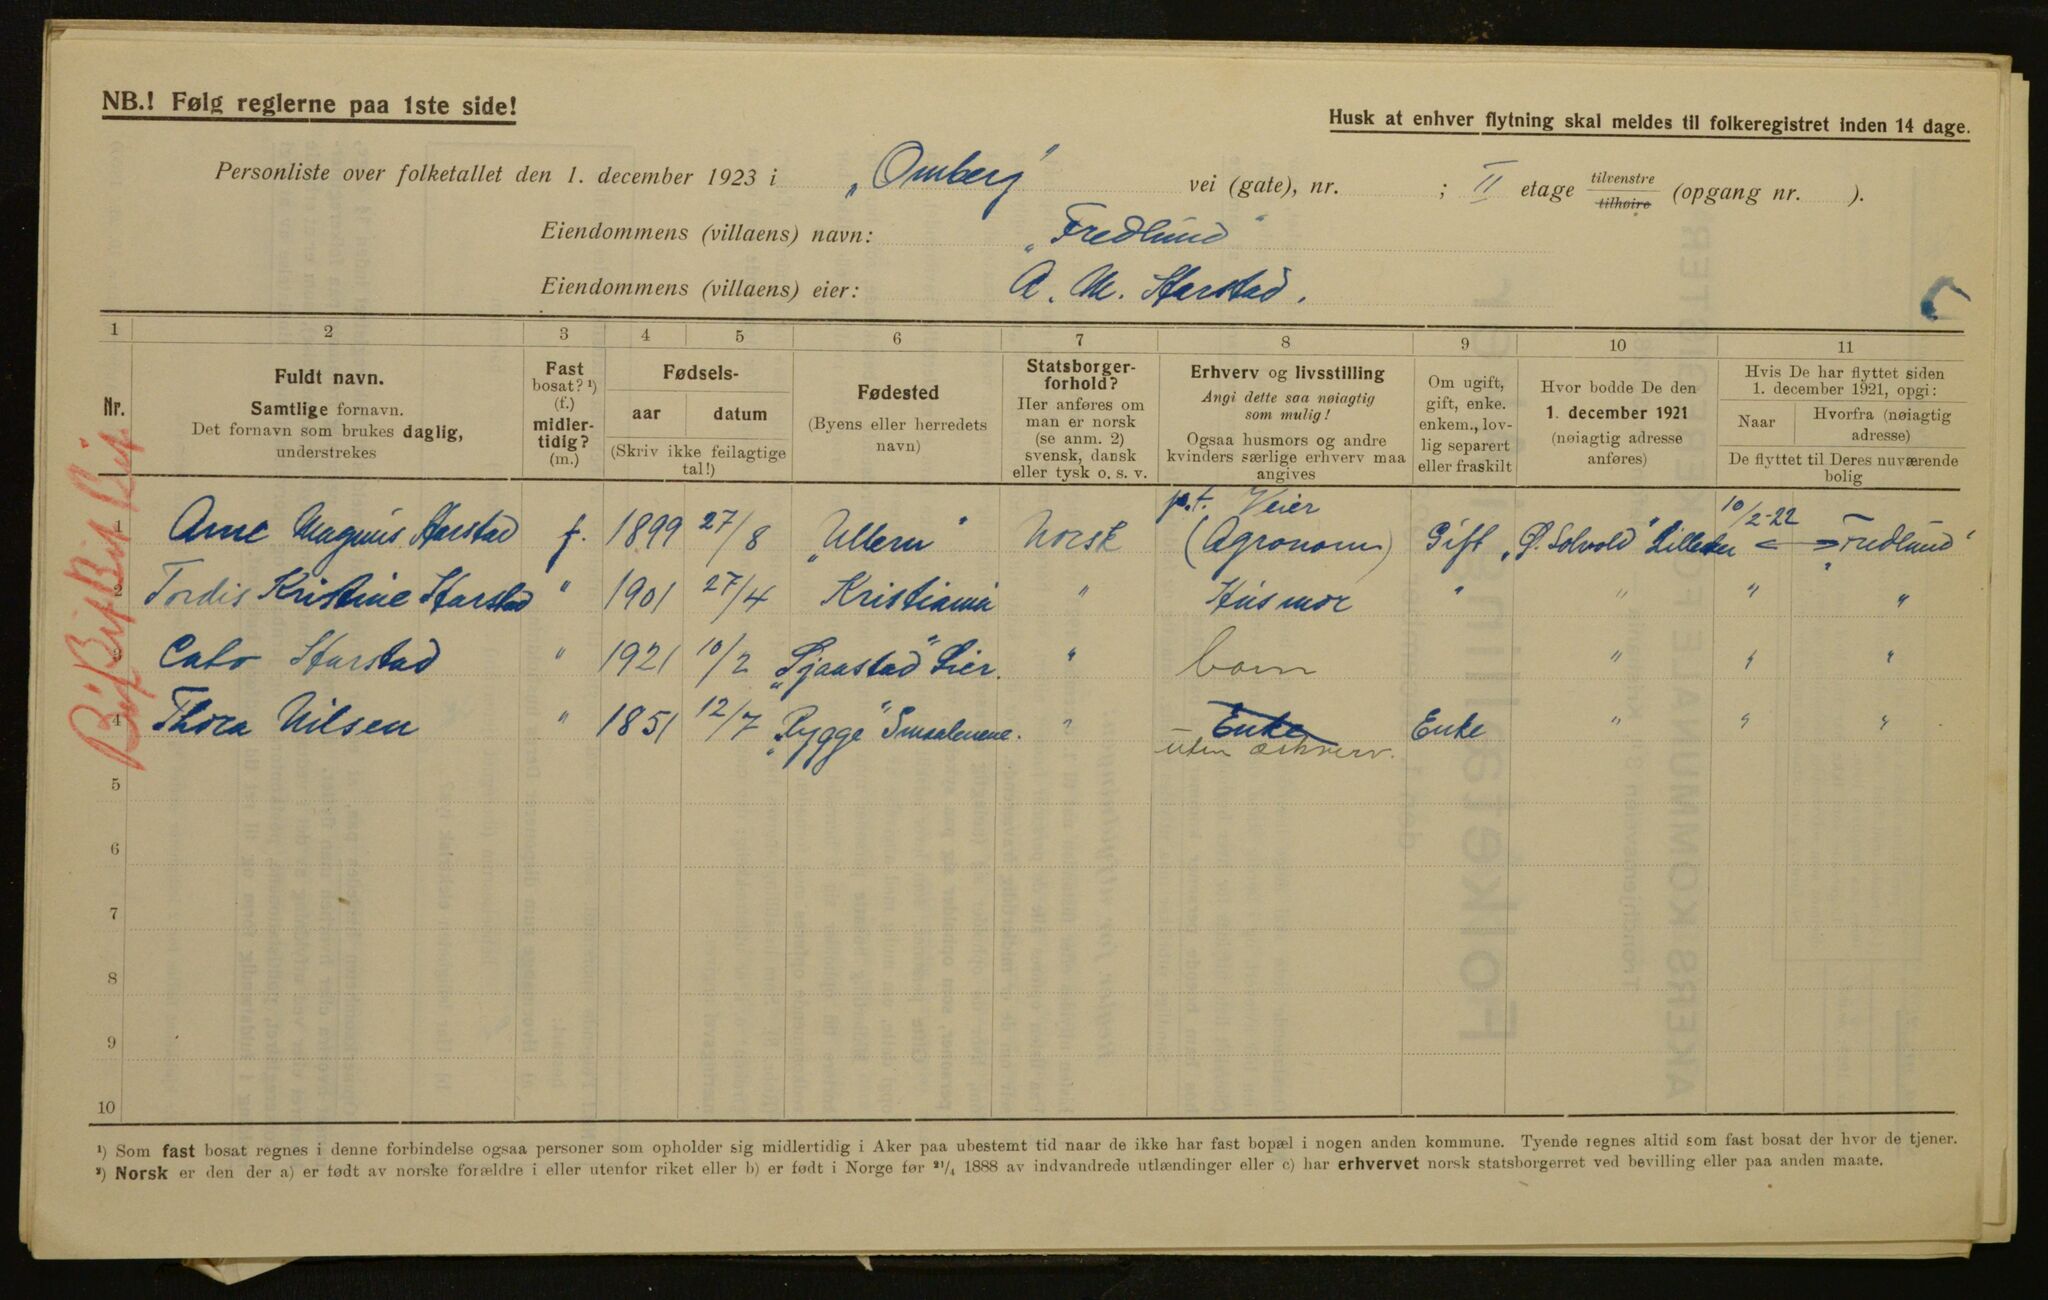 NB.! Følg reglerne paa 1ste side!
Husk at enhver flytning skal meldes til folkeregistret inden 14 dage.
Personliste over folketallet den 1. december 1923 i „Omberg" vei (gate), nr. ; II etage tilvenstre tilhøire (opgang nr. ).
Eiendommens (villaens) navn: „Fredlund"
Eiendommens (villaens) eier: A. M. Harstad.
1 2 3 4 5 6 7 8 9 10 11
Nr.
Fuldt navn.
Samtlige fornavn.
Det fornavn som brukes daglig,
understrekes
Fast
bosat? ¹)
(f.)
midler-
tidig?
(m.)
Fødsels-
aar datum
(Skriv ikke feilagtige
tal!)
Fødested
(Byens eller herredets
navn)
Statsborger-
forhold?
Her anføres om
man er norsk
(se anm. 2)
svensk, dansk
eller tysk o. s. v.
Erhverv og livsstilling
Angi dette saa nøiagtig
som mulig!
Ogsaa husmors og andre
kvinders særlige erhverv maa
angives
Om ugift,
gift, enke.
enkem., lov-
lig separert
eller fraskilt
Hvor bodde De den
1. december 1921
(nøiagtig adresse
anføres)
Hvis De har flyttet siden
1. december 1921, opgi:
Naar Hvorfra (nøiagtig
adresse)
De flyttet til Deres nuværende
bolig
1 Arne Magnus Harstad f. 1899 27/8 „Ullern" Norsk p.t. Veier (Agronom) Gift Lilleaker 10/2-22 „Fredlund"
2 Tordis Kristine Harstad " 1901 27/4 Kristiania " Husmor " " " "
3 Cato Harstad " 1921 10/2 „Sjaastad" Lier. " barn " " "
4 Thora Nilsen " 1851 12/7 „Rygge" Smaalenene. " Enke Enke " " "
uten erhverv.
5
6
7
8
9
10
¹) Som fast bosat regnes i denne forbindelse ogsaa personer som opholder sig midlertidig i Aker paa ubestemt tid naar de ikke har fast bopæl i nogen anden kommune. Tyende regnes altid som fast bosat der hvor de tjener.
²) Norsk er den der a) er født av norske forældre i eller utenfor riket eller b) er født i Norge før ²¹/₄ 1888 av indvandrede utlændinger eller c) har erhvervet norsk statsborgerret ved bevilling eller paa anden maate.